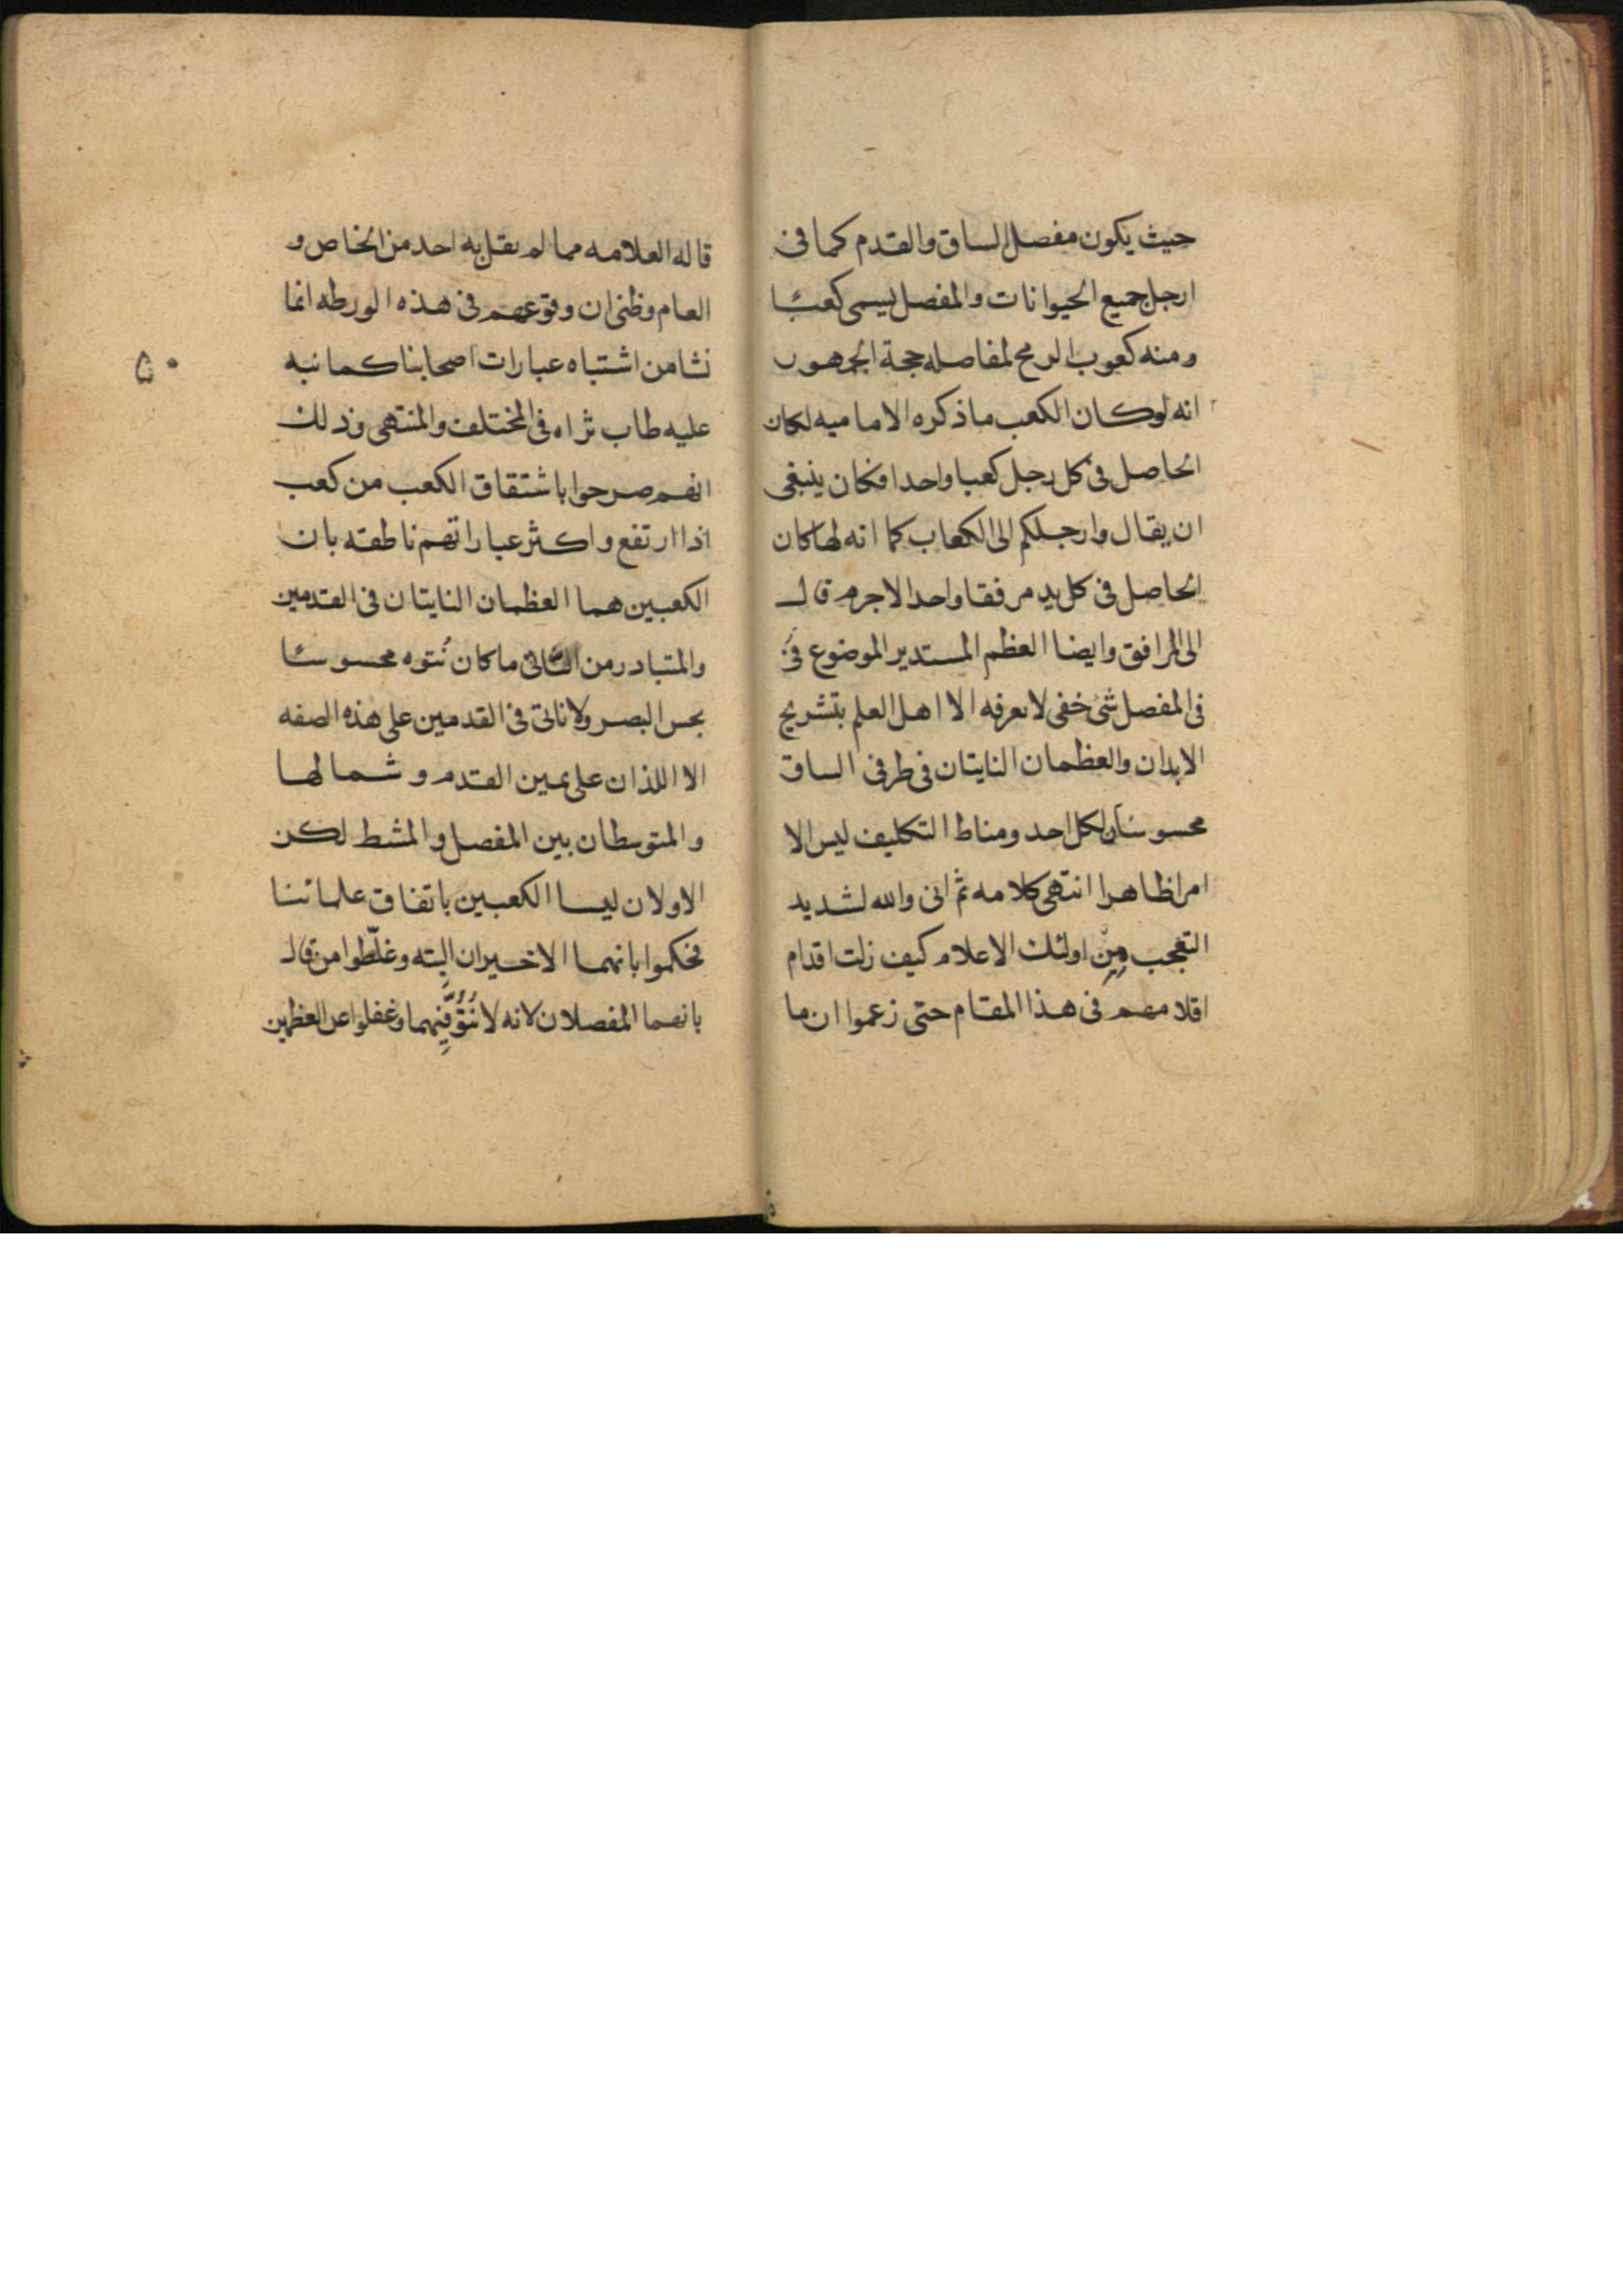 حيث يكون مفصل الساق والقدم كما فى
ارجل جميع الحيوانات والمفصل يسمى كعبًا
ومنه كعوب الرمح لمفاصله حجة الجمهور
انه لوكان الكعب ما ذكره الاماميه لكان
الحاصل فى كل رجل كعبا واحدا فكان ينبغى
ان يقال وارجلكم الى الكعاب كما انه لما كان
الحاصل فى كل يد مرفقا واحدا لاجرم قال
الى المرافق وايضا العظم المستدير الموضوع فى
فى المفصل شئ خفى لا يعرفه الا اهل العلم بتشريح
الابدان والعظمان النايتان فى طرفى الساق
محسوسان لكل احد ومناط التكليف ليس الا
امرا ظاهرا انتهى كلامه ثم انى والله لشديد
التعجب مِنْ اولئك الاعلام كيف زلت اقدام
اقلامهم فى هذا المقام حتى زعموا ان ما
قاله العلامه مما لم يقل به احد من الخاص و
العام وظنى ان وقوعهم فى هذه الورطه انما
نشا من اشتباه عبارات اصحابنا كما نبه
عليه طاب ثراه فى المختلف والمنتهى وذلك
انهم صرحوا باشتقاق الكعب من كعب
اذا ارتفع واكثر عباراتهم ناطقه بان
الكعبين هما العظمان النايتان فى القدمين
والمتبادر من الناتى ما كان نُتوه محسوسًا
بحس البصر ولا ناتى فى القدمين على هذه الصفه
الا اللذان على يمين القدم و شمالها
والمتوسطان بين المفصل والمشط لكن
الاولان ليسا الكعبين باتفاق علمائنا
فحكموا بانهما الاخيران البته وغلّطوا من قال
بانهما المفصلان لانه لا نُتُوَّ فِيهما وغفلوا عن العظمين
۵۰